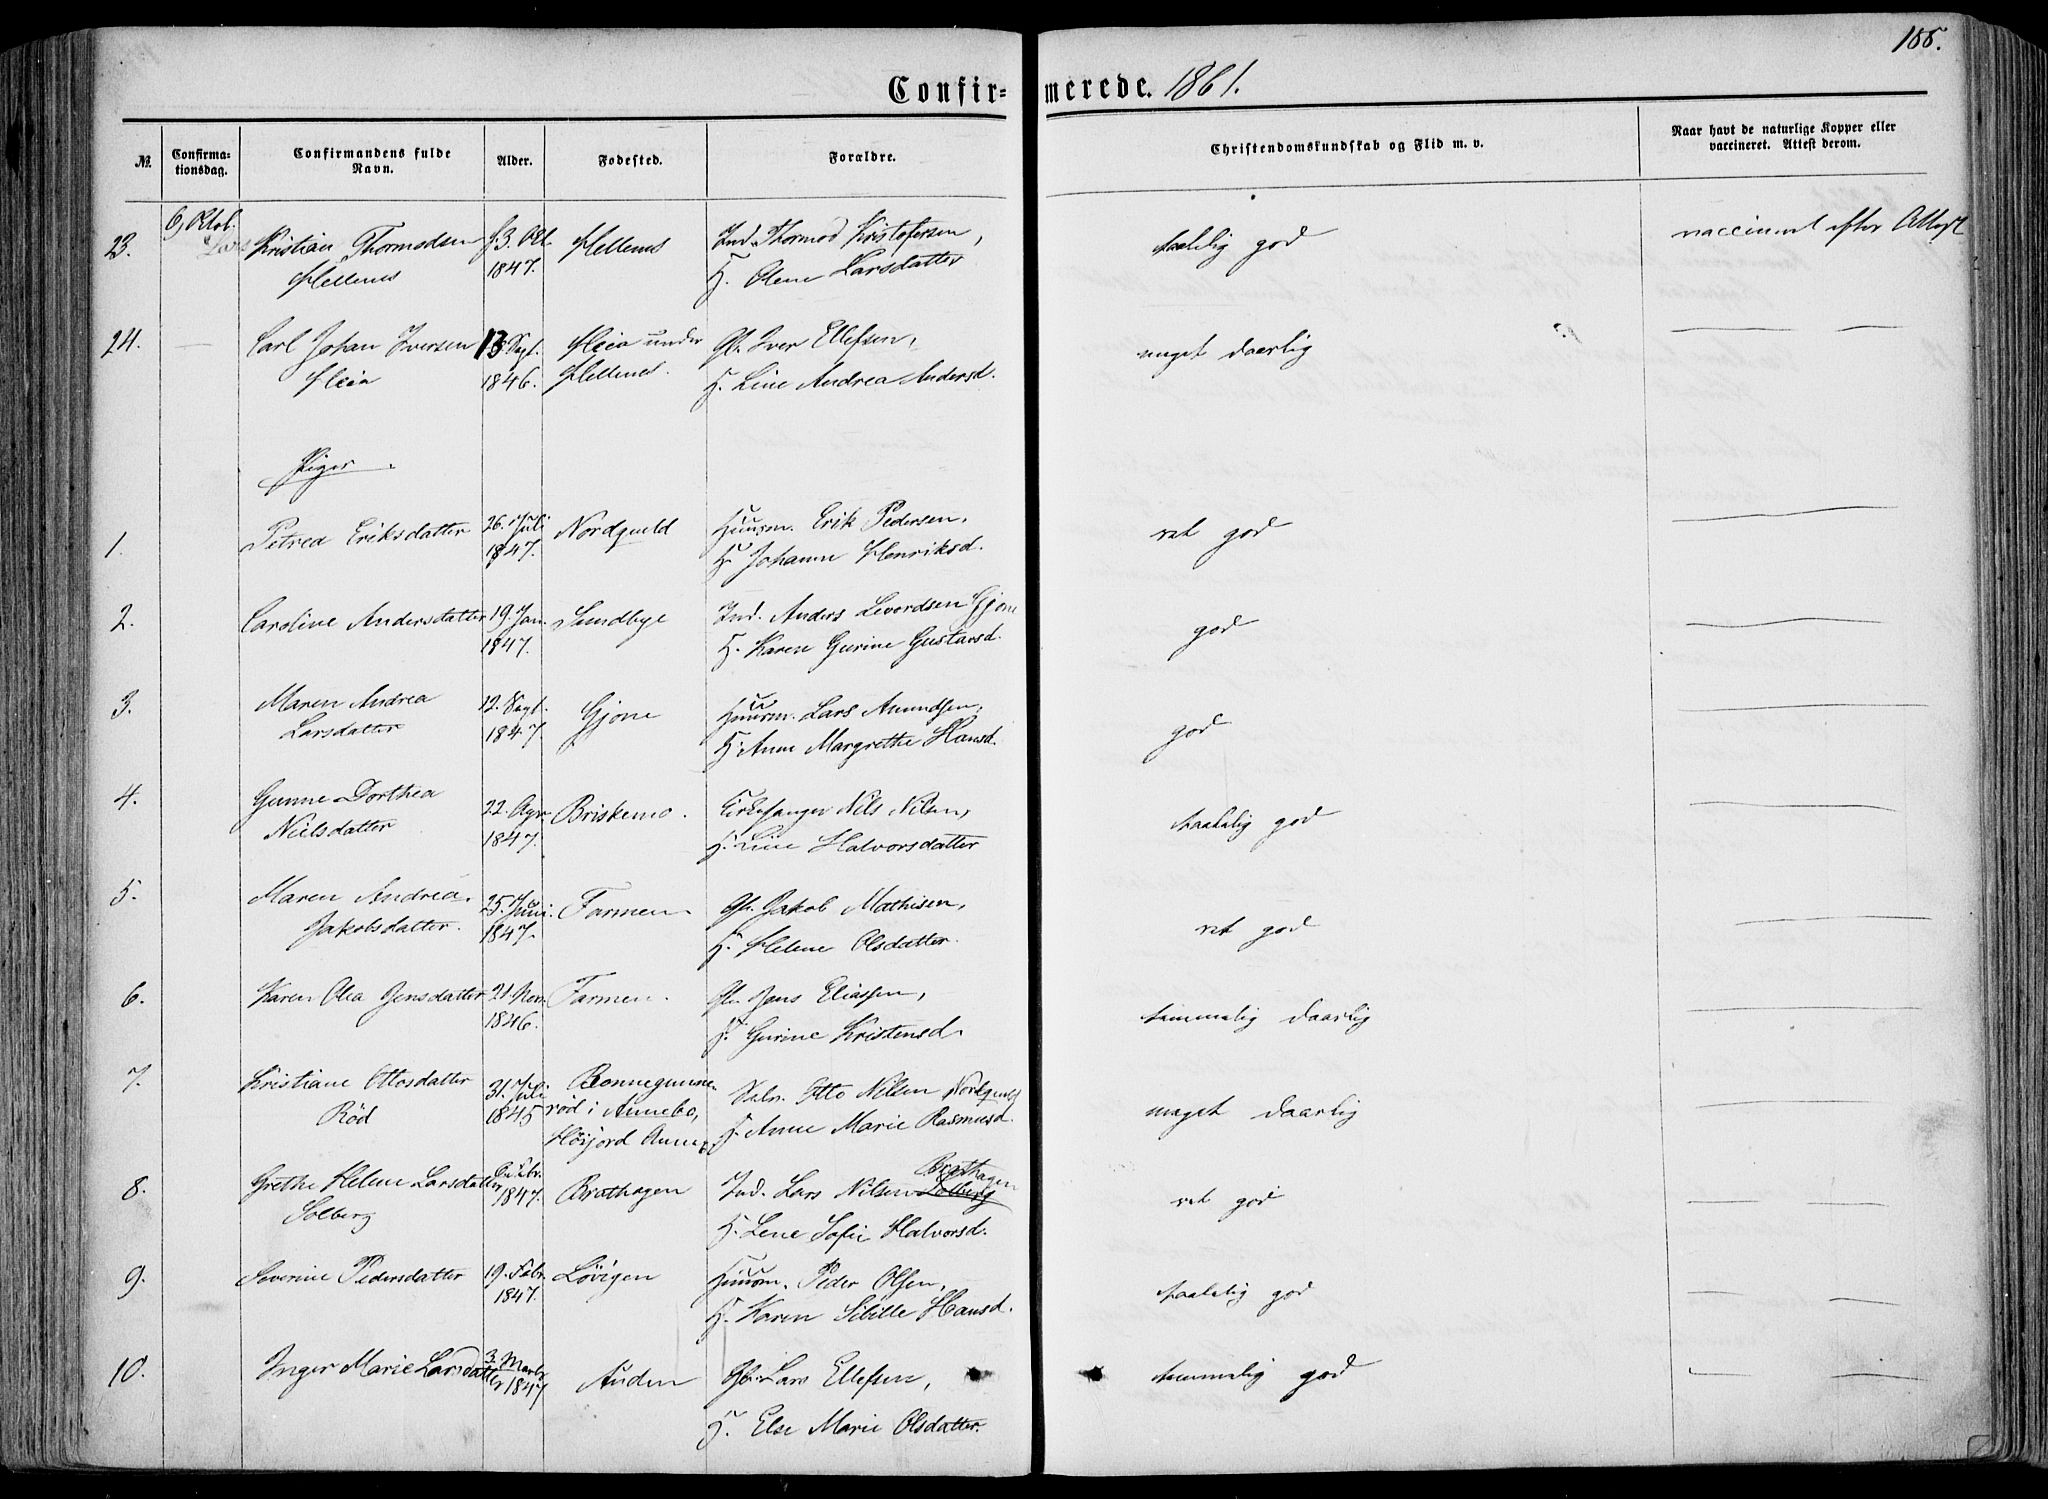 188.
Confirmerede. 1861.
№. Confirmationsdag. Confirmandens fulde Navn. Alder. Fødested. Forældre. Christendomskundskab og Flid m. v. Naar havt de naturlige Kopper eller vaccineret. Attest derom.
6 Oktob.
23. Lars Kristian Thormodsen 3. Okt. Hellenes Ind. Thormod Kristofersen, taalelig god vaccineret efter Attest
Hellenes 1847. H. Olene Larsdatter
24. — Carl Johan Iversen 13 Sept. Heia under Gb. Iver Ellefsen, meget daarlig — —
Heia 1846. Hellenes. H. Line Andrea Andersd.
Piger.
1. Petrea Eriksdatter 26. Juli Nordqveld Huusm. Erik Pedersen, ret god —
1847. H. Johanne Henriksd.
2. Caroline Andersdatter 19. Jan. Sundbye Ind. Anders Levordsen Gjone god —
1847. H. Karen Gurine Gustavsd.
3. Maren Andrea 12. Sept. Gjone Huusm. Lars Amundsen, god —
Larsdatter 1847. H. Anne Margrethe Hansd.
4. Gunne Dorthea 22. Apr. Briskemo. Kirkesanger Nils Nilsen, taalelig god —
Nielsdatter 1847. H. Line Halvorsdatter
5. Maren Andrea 25. Juni Farmen Gb. Jakob Mathisen, ret god —
Jakobsdatter. 1847. H. Helene Olsdatter.
6. Karen Olea Jensdatter 21. Nov. Farmen. Gb. Jens Eliassen, temmelig daarlig —
1846. H. Gurine Kristensd.
7. Kristiane Ottosdatter 31. Juli Bonnegunnerød i Annebo, Sølv. Otto Nilsen Nordqveld meget daarlig —
Rød 1845 Høijord Annex H. Anne Marie Rasmusd.
8. Grethe Helene Larsdatter Febr. Brathagen Ind. Lars Nilsen Solberg Brathagen ret god — —
Solberg 1847. H. Lene Sofie Halvorsd.
9. Severine Pedersdatter 19. Febr. Løvigen Huusm. Peder Olsen, taalelig god — —
1847. H. Karen Sibille Hansd.
10. Inger Marie Larsdatter 3. Marts Auden Gb. Lars Ellefsen, temmelig god — —
1847 H. Else Marie Olsdatter.